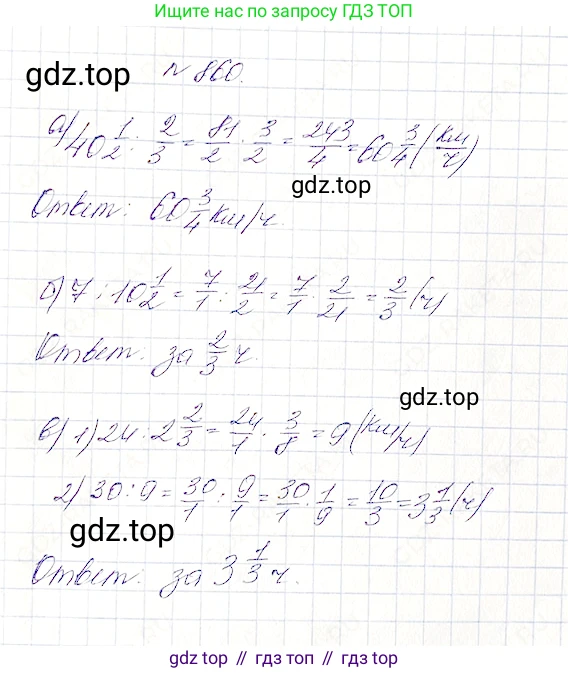 Ищите нас по запросу ГДЗ ТОП
gdz.top
№ 860.
а) 40 1/2 : 2/3 = 81/2 · 3/2 = 243/4 = 60 3/4 (км/ч)
gdz.top
Ответ: 60 3/4 км/ч.
б) 7 : 10 1/2 = 7/1 : 21/2 = 7/1 · 2/21 = 2/3 (ч)
Ответ: за 2/3 ч.
gdz.top
в) 1) 24 : 2 2/3 = 24/1 · 3/8 = 9 (км/ч)
2) 30 : 9 = 30/1 : 9/1 = 30/1 · 1/9 = 10/3 = 3 1/3 (ч)
gdz.top
Ответ: за 3 1/3 ч.
gdz top // гдз топ // gdz.top